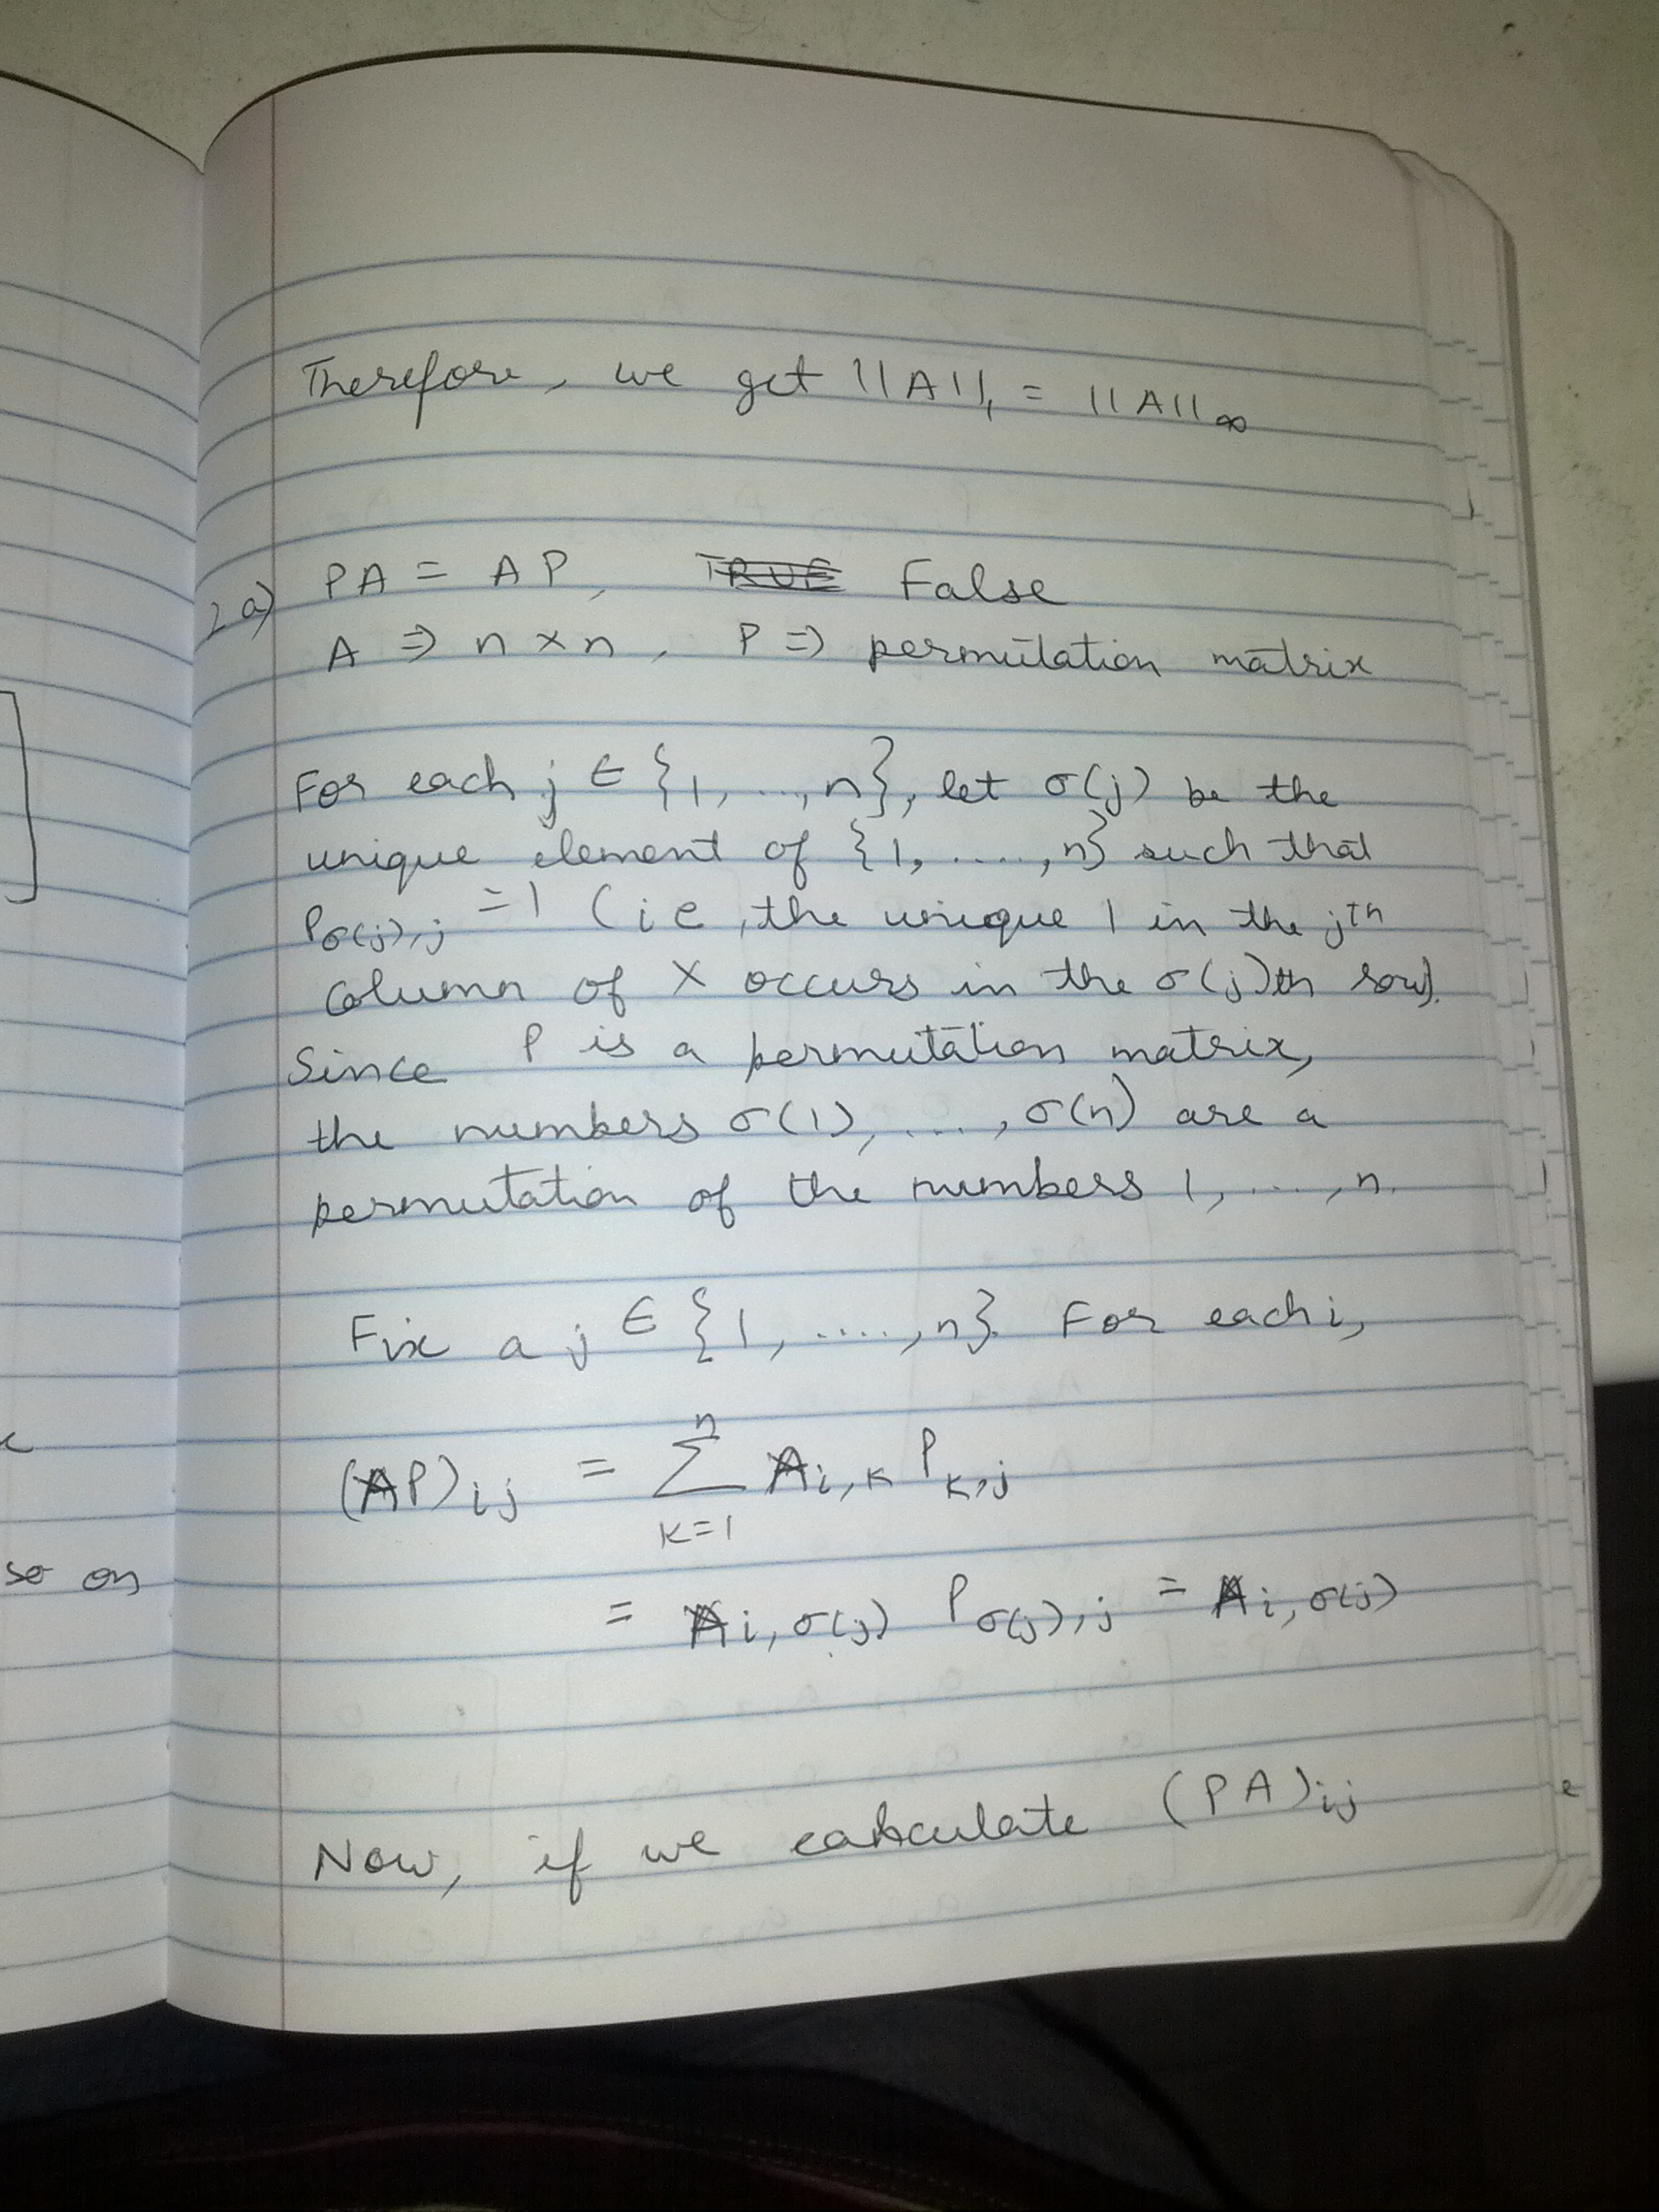 Therefore, we get ||A||₁ = ||A||∞
2a) PA = AP, TRUE False
A ⇒ n × n, P ⇒ permutation matrix
For each j ∈ {1, ..., n}, let σ(j) be the
unique element of {1, ...., n} such that
P_σ(j),j = 1 (ie, the unique 1 in the jth
column of X occurs in the σ(j)th row).
Since P is a permutation matrix,
the numbers σ(1), ...., σ(n) are a
permutation of the numbers 1, ...., n.
Fix a j ∈ {1, ...., n}. For each i,
(AP)ij = Σ_{k=1}^{n} A_i,k P_k,j
= A_i,σ(j) P_σ(j),j = A_i,σ(j)
so on
Now, if we calculate (PA)ij